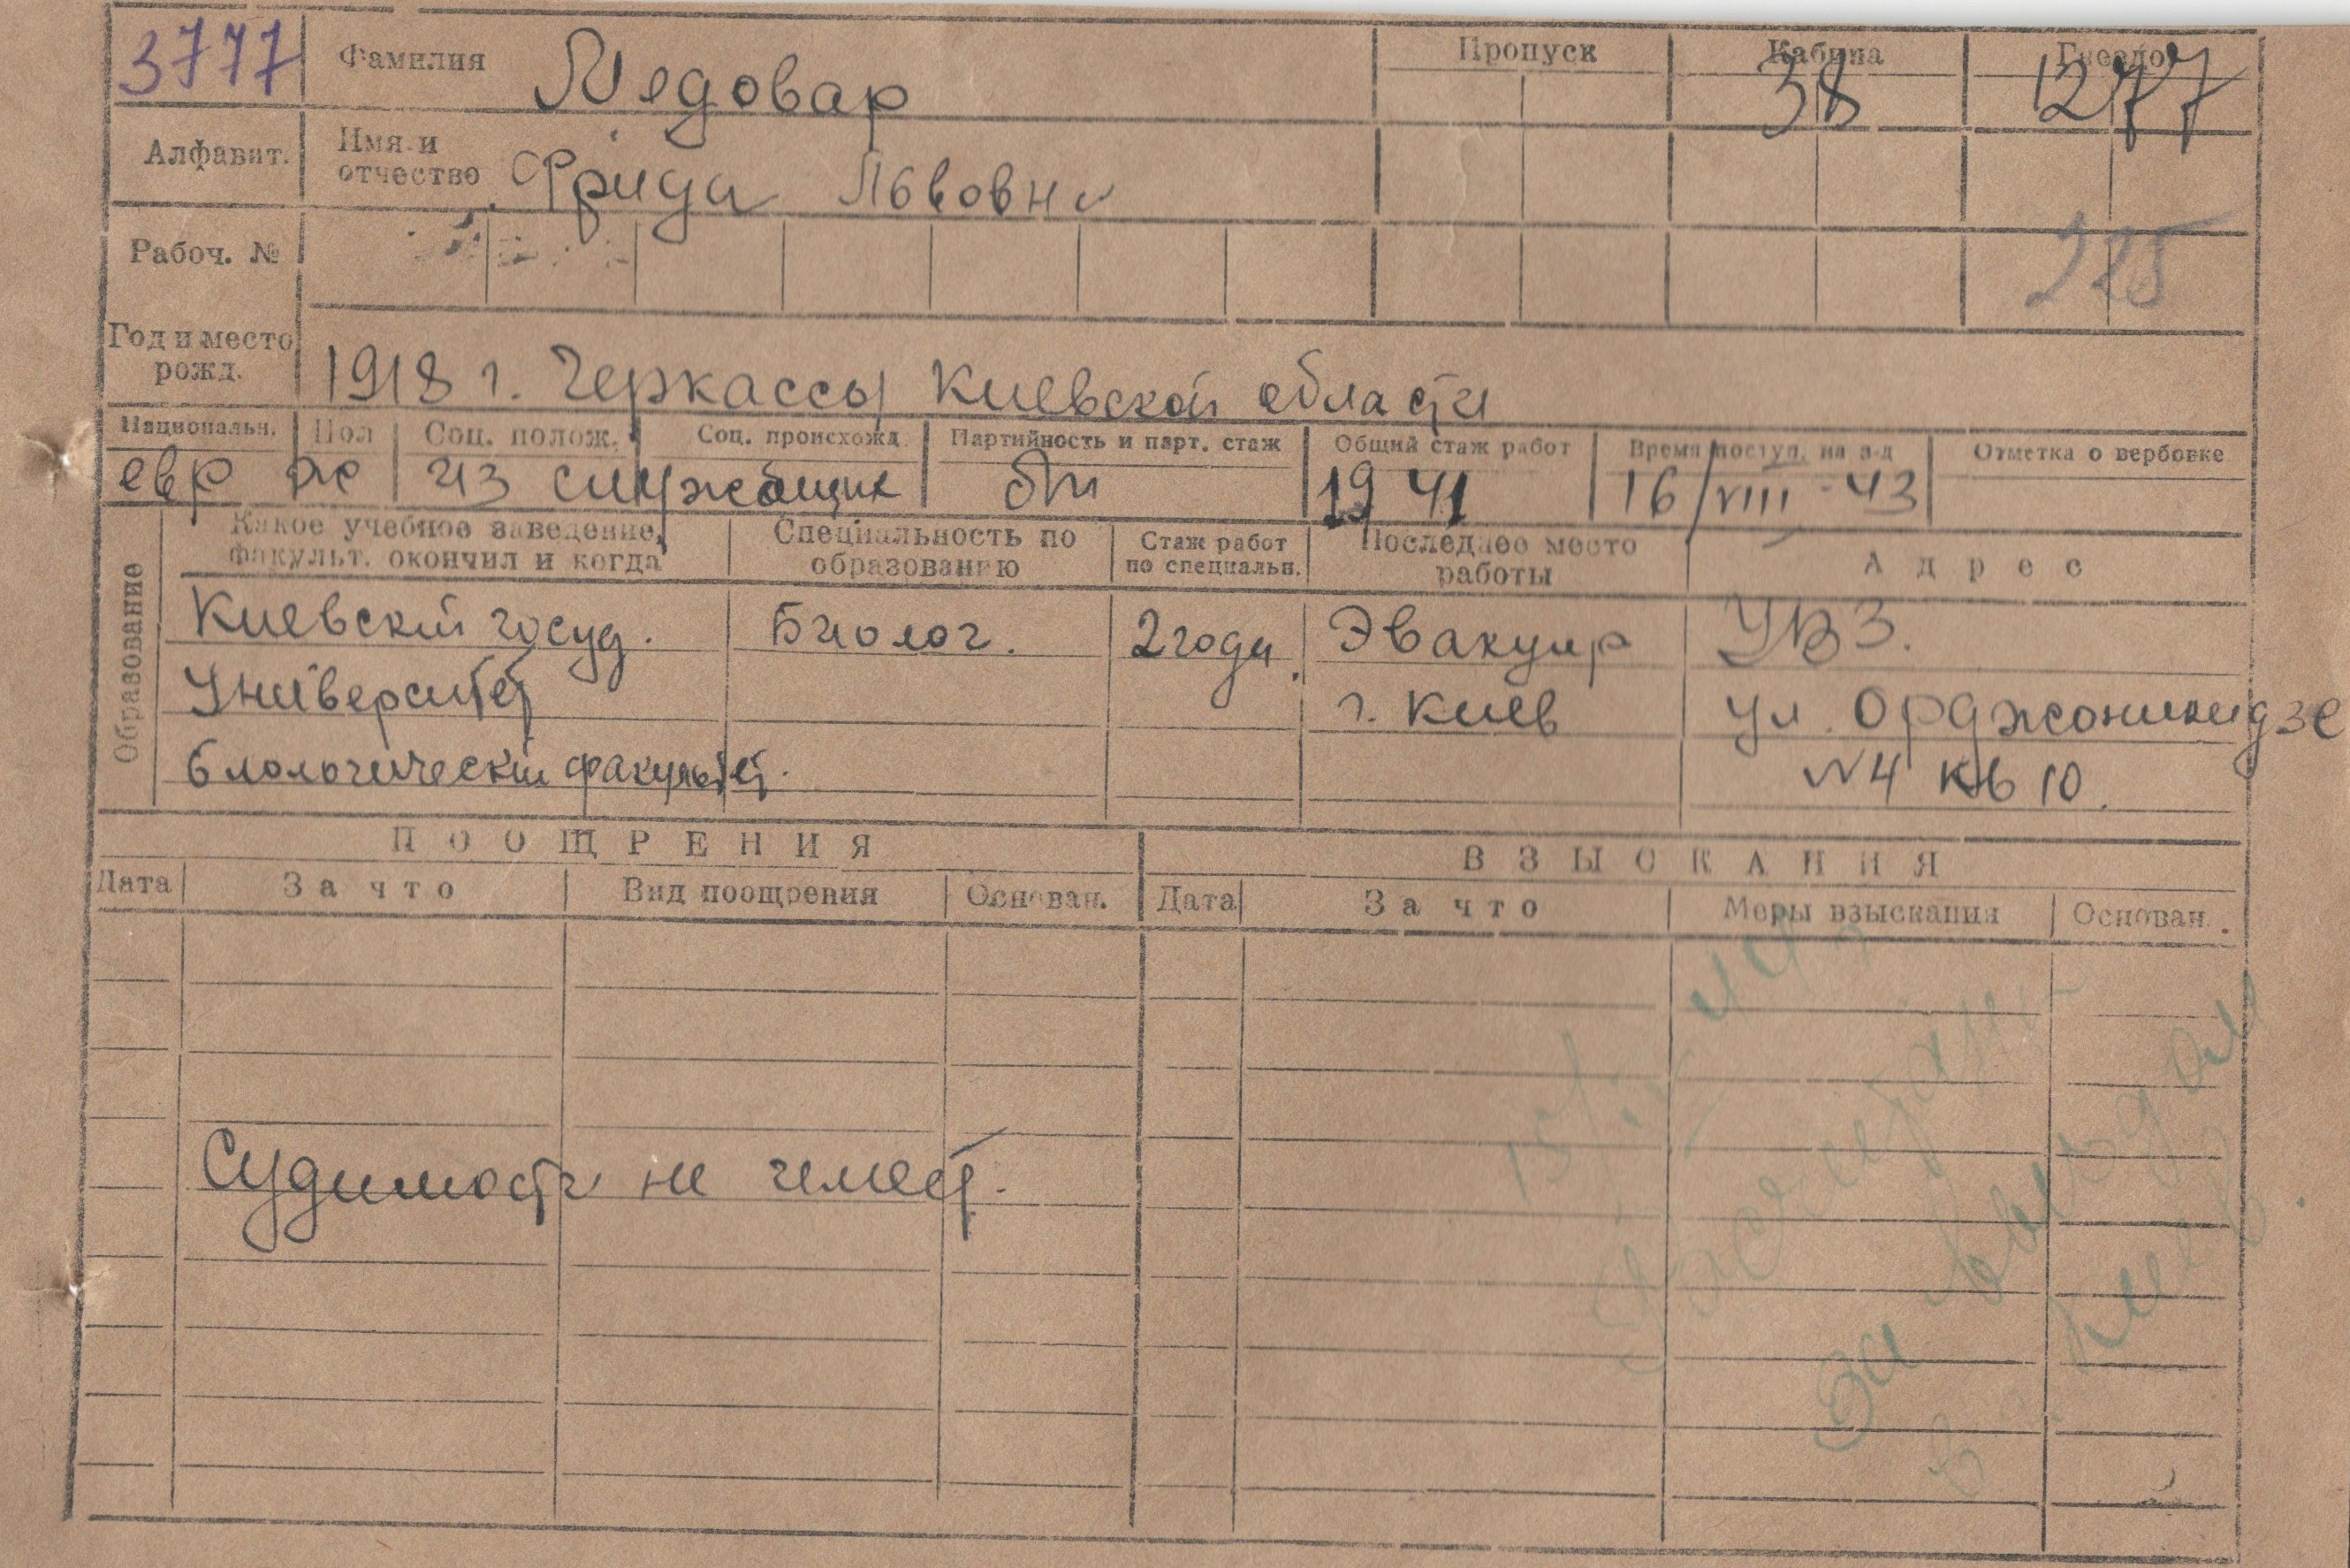 3777 Фамилия Медовар Пропуск Кабина 38 Гнездо 1277
Алфавит. Имя и отчество Фрида Львовна
Рабоч. № 225
Год и место рожд. 1918 г. Черкассы Киевской области
Национальн. Пол Соц. полож. Соц. происхожд. Партийность и парт. стаж Общий стаж работ Время поступ. на з-д Отметка о вербовке
евр ж из служащих бп 1941 16/VIII-43
Образование
Какое учебное заведение, факульт. окончил и когда Специальность по образованию Стаж работ по специальн. Последнее место работы Адрес
Киевский госуд. Биолог. 2 года. Эвакуир УВЗ.
Университет г. Киев ул. Орджоникидзе
биологический факультет. №4 кв 10.
ПООЩРЕНИЯ ВЗЫСКАНИЯ
Дата За что Вид поощрения Основан. Дата За что Меры взыскания Основан.
Судимости не имеет.
за выездом
в г. Киев.